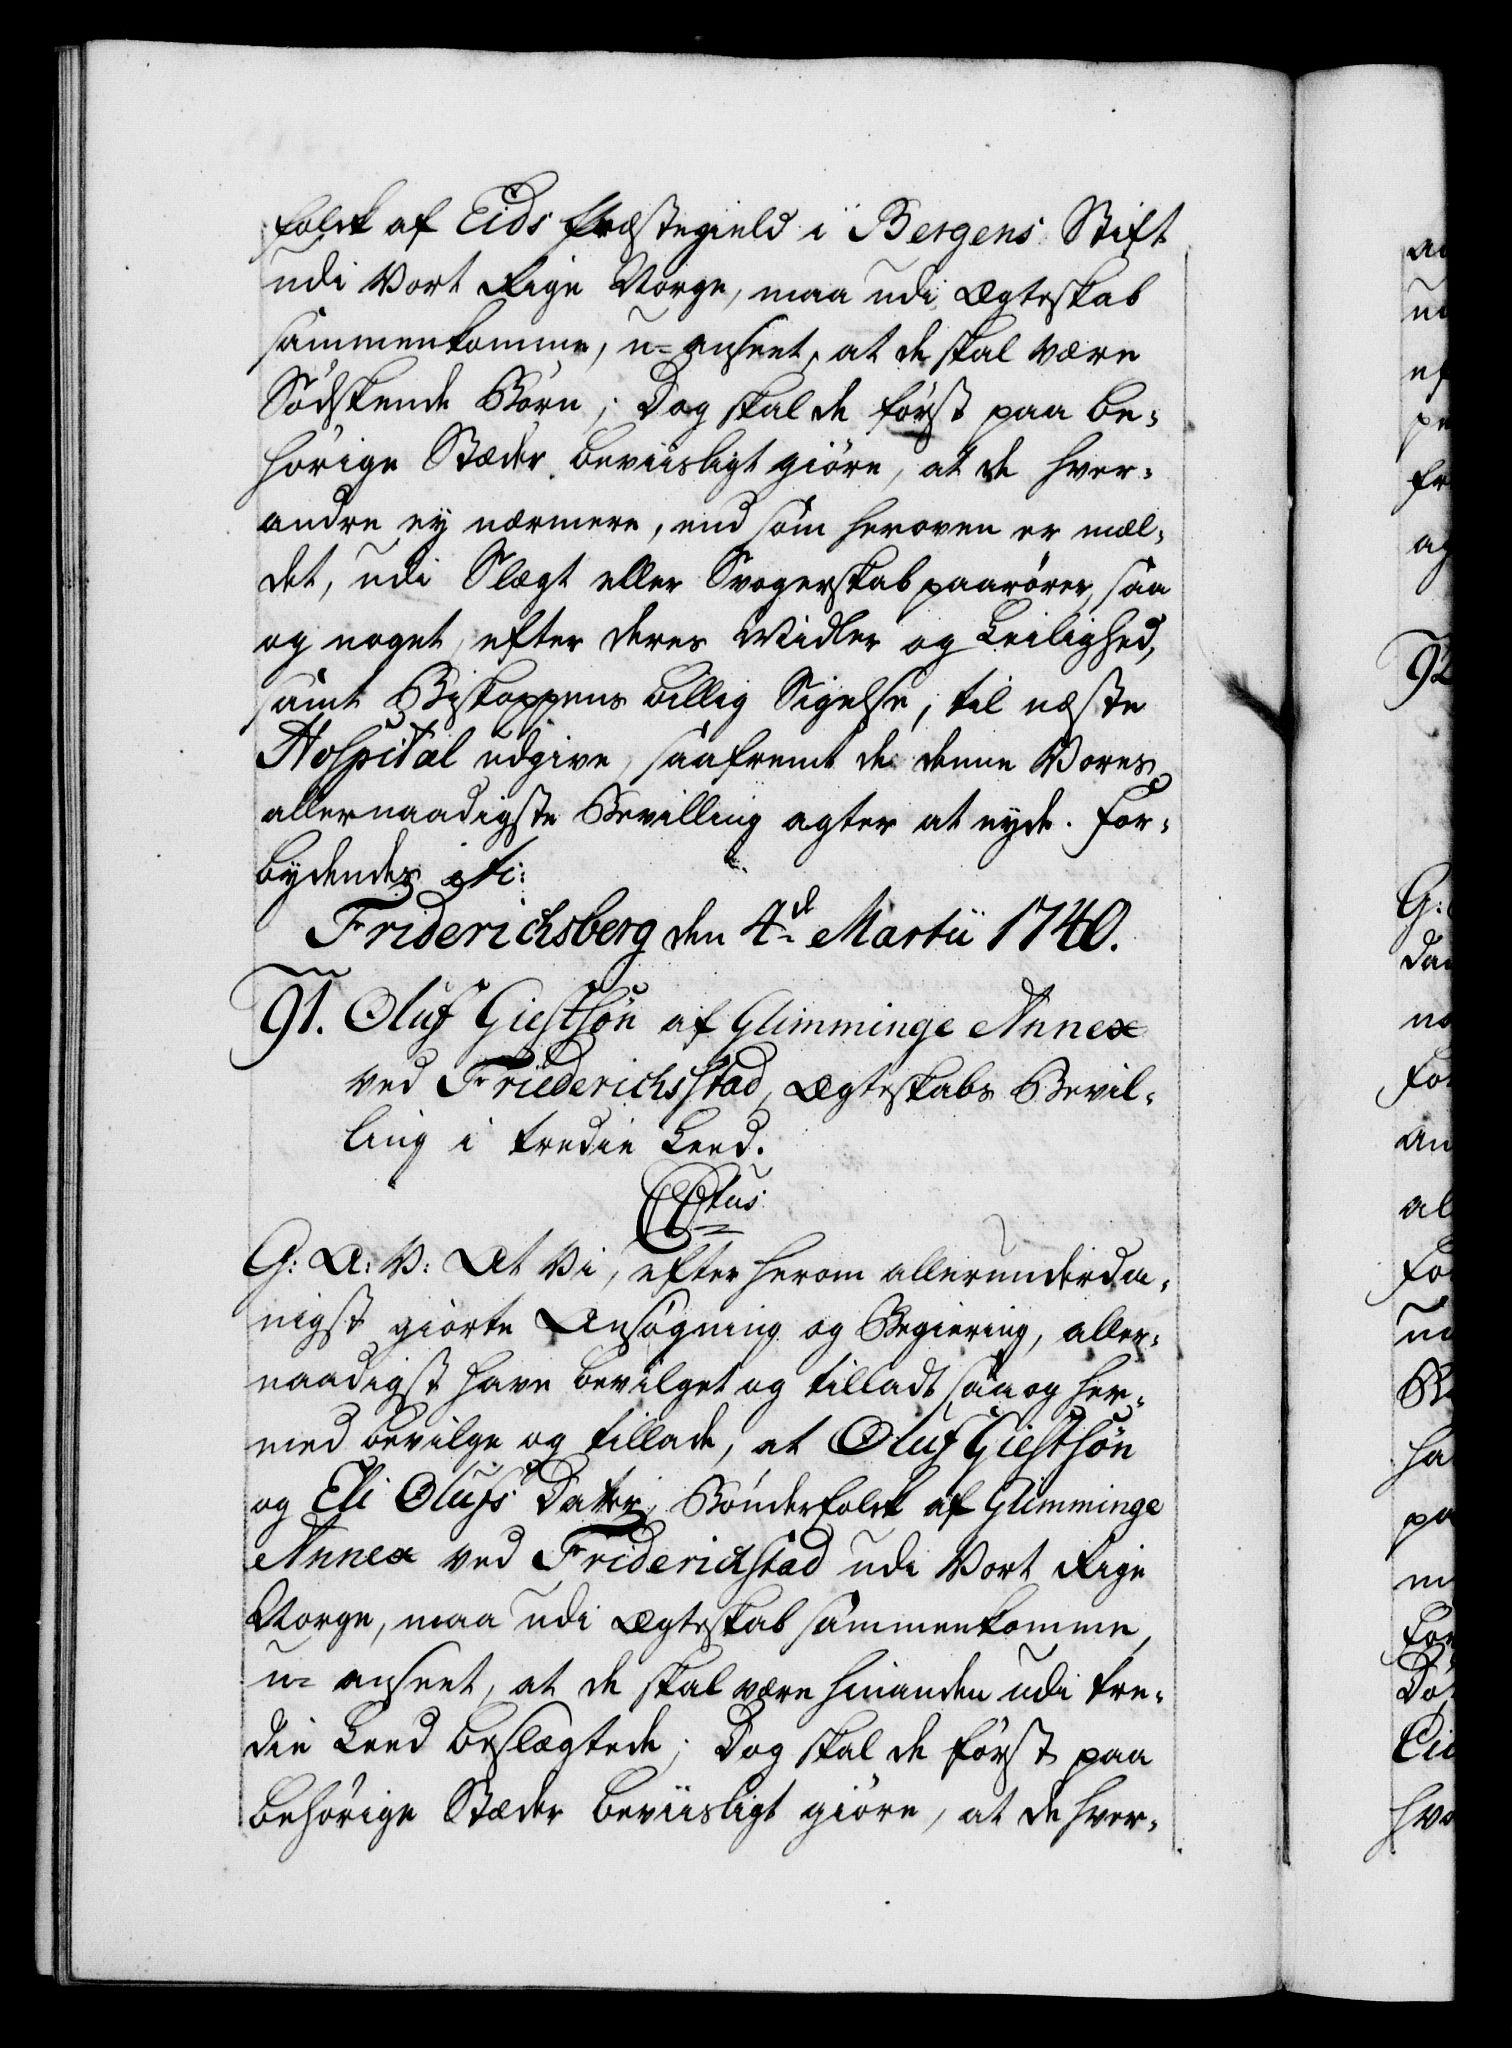 folck af Eids Præstegield i Bergens Stift
udi Vort Rige Norge, maa udi Ægteskab
sammenkomme, u-anseet, at de skal være
Södskende Börn; Dog skal de först paa be-
hörige Stæder beviisligt giöre, at de hver-
andre ey nærmere, end som heroven er mel-
det, udi Slægt eller Svogerskab paarörer, saa
og noget, efter deres Midler og Leilighed,
samt Biskoppens billig Sigelse, til næste
Hospital udgive, saafremt de denne Vores
allernaadigste Bevilling agter at nyde. For-
bydendes etc:
Friderichsberg den 4de Martii 1740.
91. Oluf Giestsön af Glimminge Annex
ved Friederichsstad, Ægteskabs Bevil-
ling i tredie Leed.
G: A: V: At Vi, efter herom allerunderda-
nigst giorte Ansögning og Begiering, aller-
naadigst have bevilget og tilladt, saa og her-
med bevilge og tillade, at Oluf Giestsön
og Eli Olufs Datter, Bönderfolck af Glimminge
Annex ved Friderichstad udi Vort Rige
Norge, maa udi Ægteskab sammenkomme,
u-anseet, at de skal være hinanden udi tre-
die Leed beslægtede; Dog skal de först paa
behörige Stæder beviisligt giöre, at de hver-